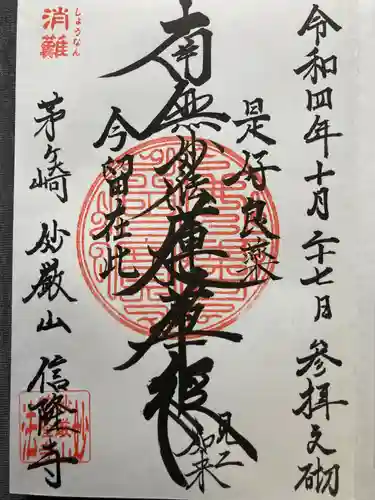 令和四年十月二十七日 參拝之砌
是好良薬
南無妙法蓮華経
今留在此
しょうなん
消難
茅ヶ崎 妙厳山 信隆寺